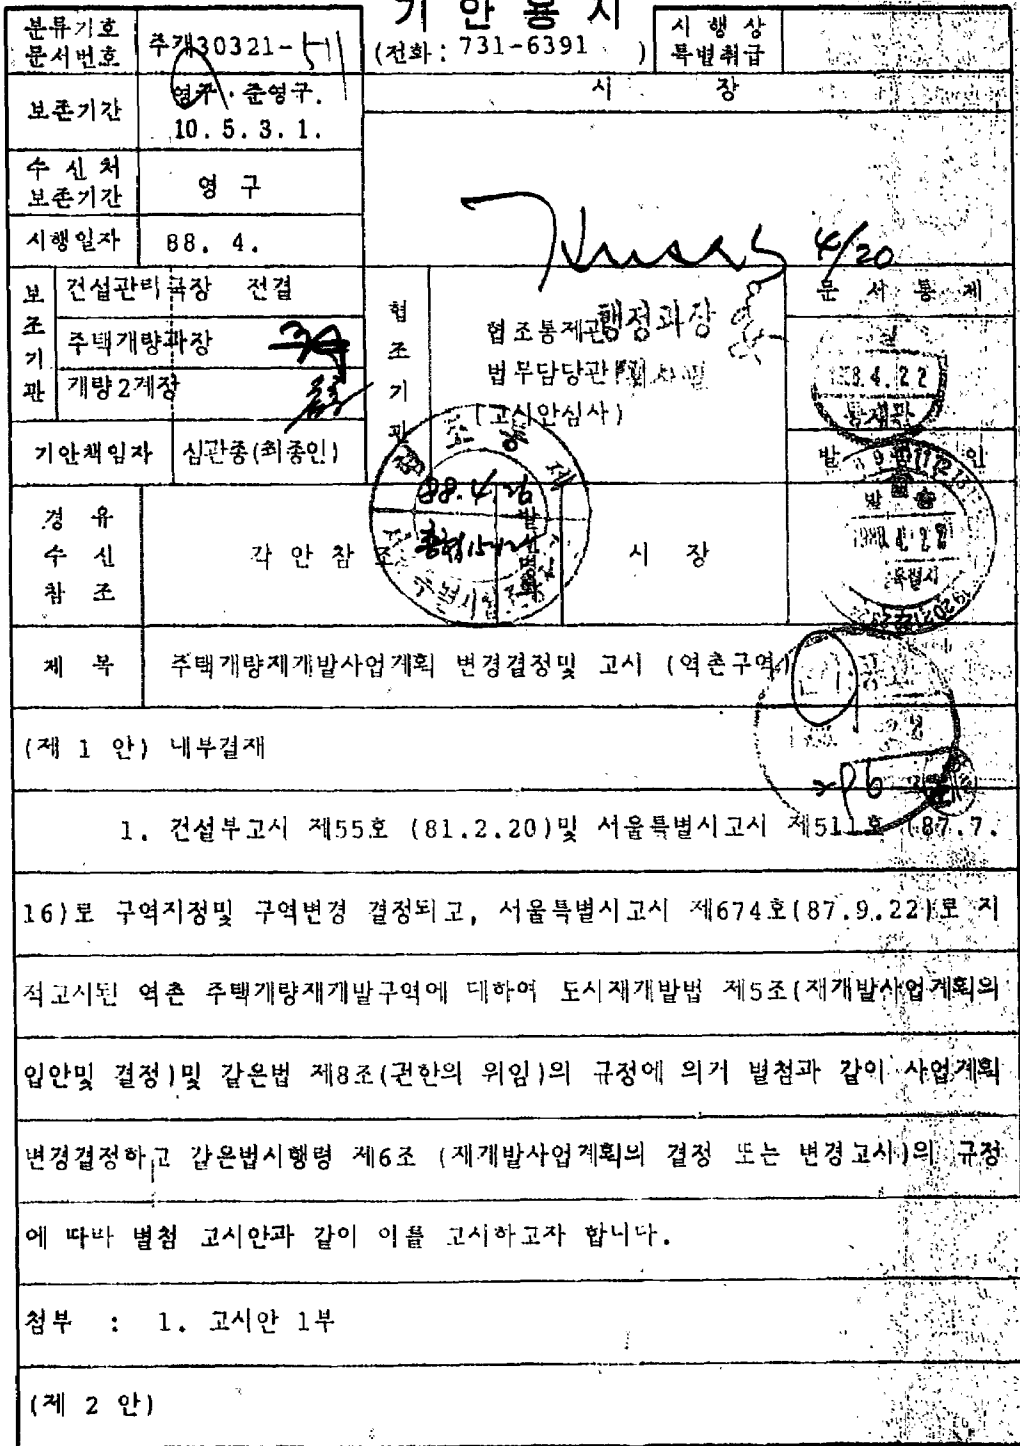 기 안 용 지
분류기호
문서번호
주개30321-511
(전화: 731-6391 )
시 행 상
특별취급
보존기간
영구·준영구.
10. 5. 3. 1.
시 장
수 신 처
보존기간
영 구
시행일자
88. 4.
4/20
보조기관
건설관리국장 전결
주택개량과장
개량2계장
협조기관
협조통제관 행정과장
법무담당관
(고시안심사)
문 서 통 제
88.4.22
통제관
기안책임자
심관종(최종인)
발 인
경 유
수 신
참 조
각 안 참 조
88.4.
시 장
발 송
제 목
주택개량재개발사업계획 변경결정및 고시 (역촌구역)
(제 1 안) 내부결재
1. 건설부고시 제55호 (81.2.20)및 서울특별시고시 제511호 (87.7.
16)로 구역지정및 구역변경 결정되고, 서울특별시고시 제674호(87.9.22)로 지
적고시된 역촌 주택개량재개발구역에 대하여 도시재개발법 제5조(재개발사업계획의
입안및 결정)및 같은법 제8조(권한의 위임)의 규정에 의거 별첨과 같이 사업계획
변경결정하고 같은법시행령 제6조 (재개발사업계획의 결정 또는 변경고시)의 규정
에 따라 별첨 고시안과 같이 이를 고시하고자 합니다.
첨부 : 1. 고시안 1부
(제 2 안)